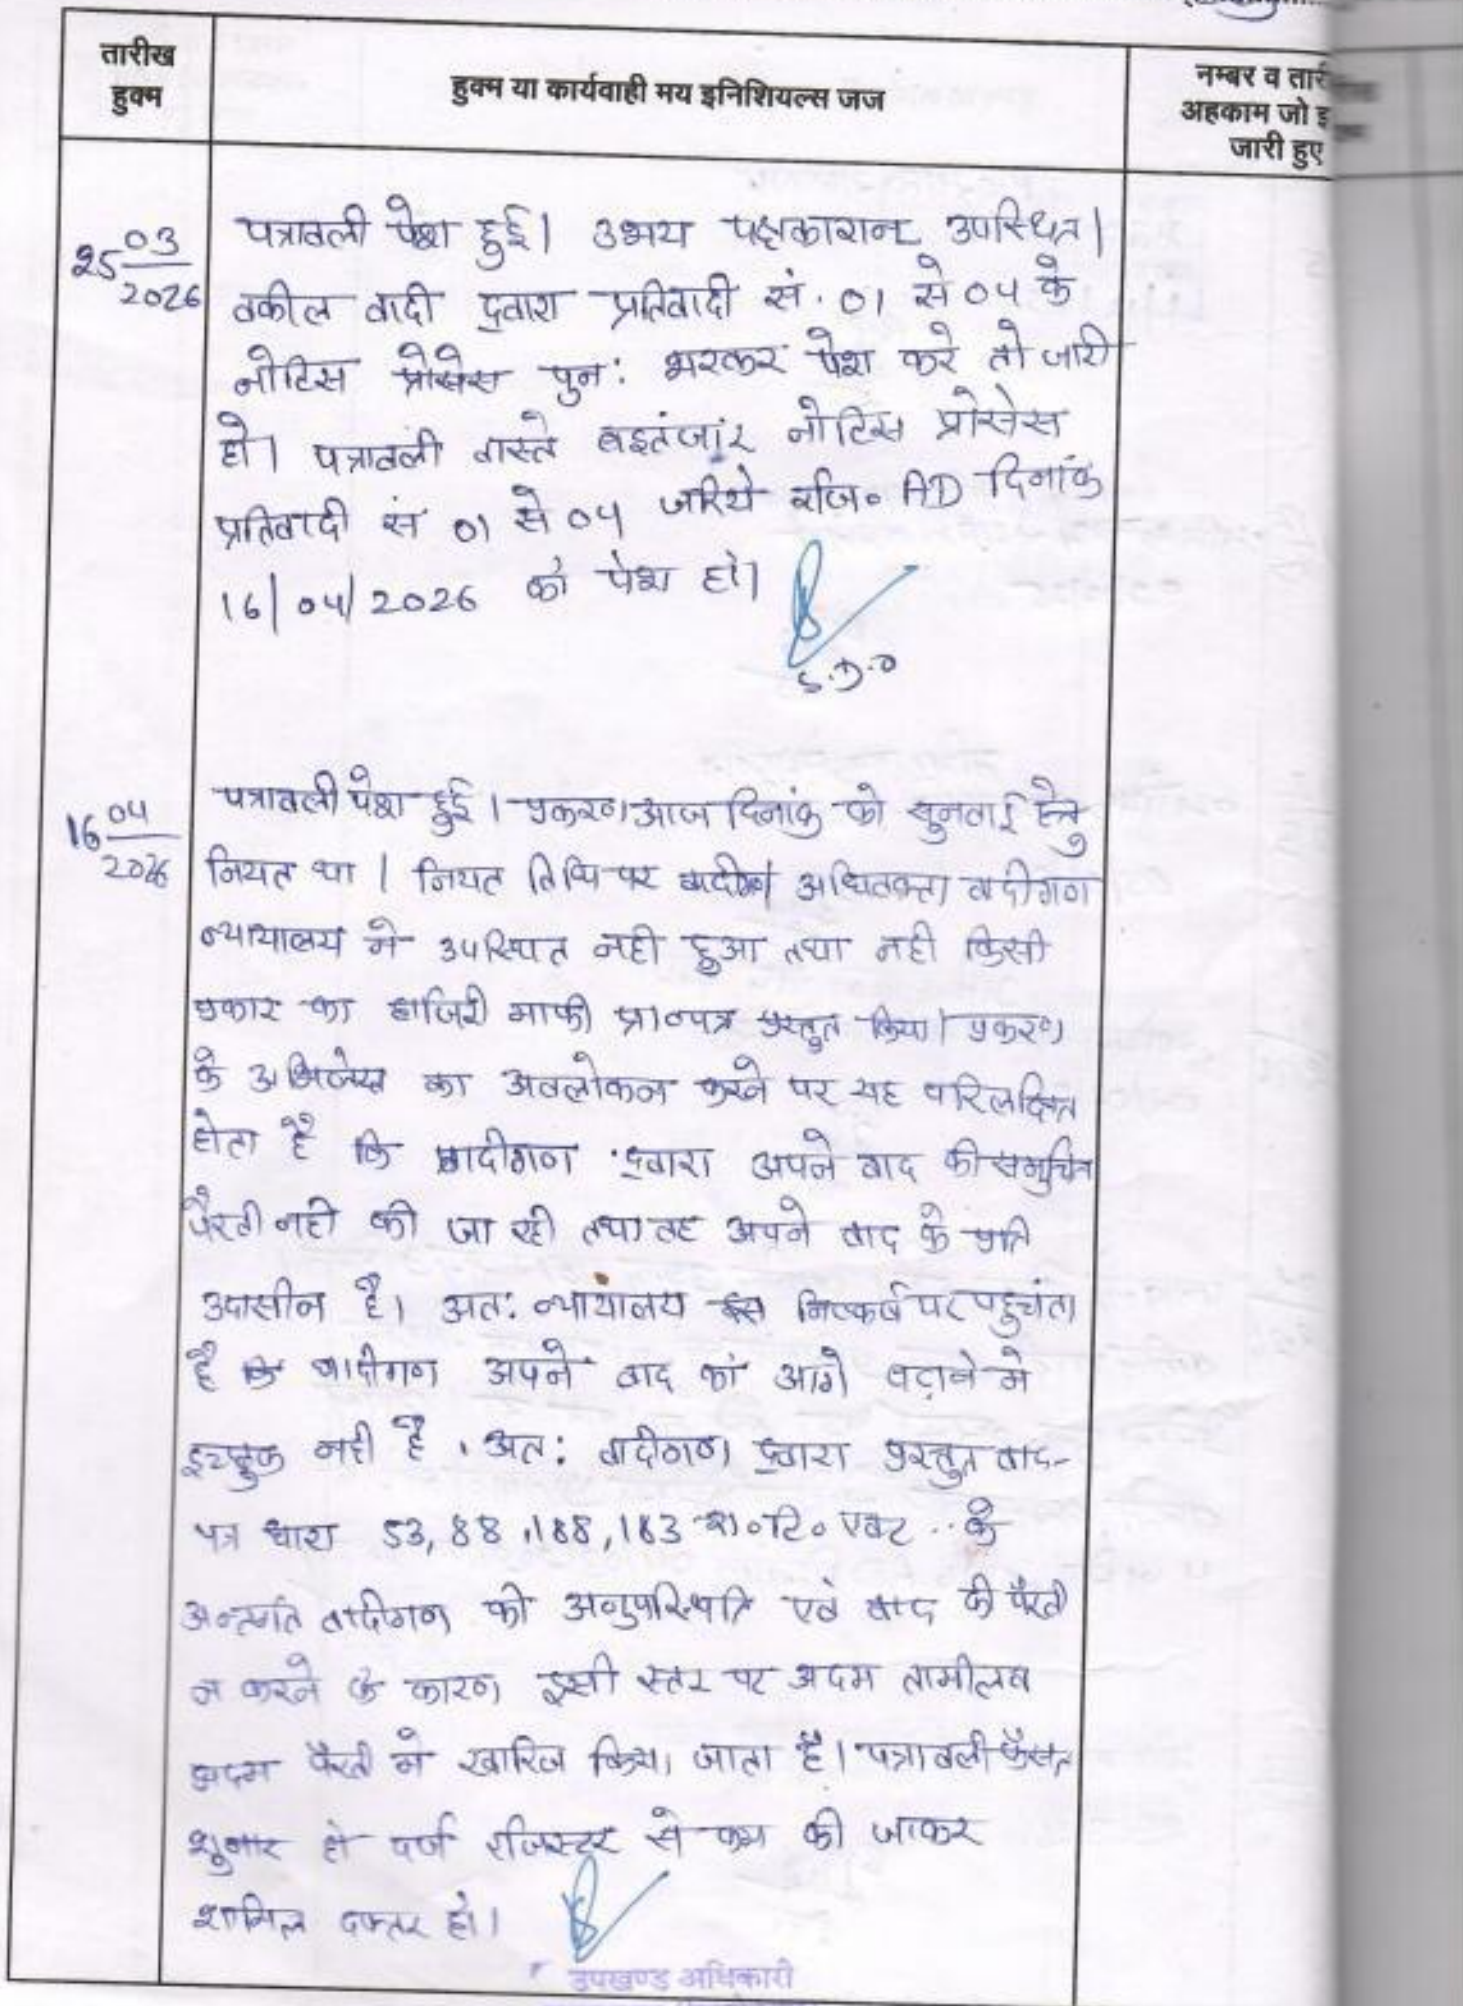 तारीख
हुक्म
हुक्म या कार्यवाही मय इनिशियल्स जज
नम्बर व तारी
अहकाम जो इ
जारी हुए
25 03/2026
पत्रावली पेश हुई। उभय पक्षकारान उपस्थित।
वकील वादी द्वारा प्रतिवादी सं. 01 से 04 के
नोटिस प्रोसेस पुन: भरकर पेश करे तो जारी
हो। पत्रावली वास्ते बइतंजार नोटिस प्रोसेस
प्रतिवादी सं 01 से 04 जरिये रजि० AD दिनांक
16/04/2026 को पेश हो।
S.D.O
16 04/2026
पत्रावली पेश हुई। प्रकरण आज दिनांक को सुनवाई हेतु
नियत था। नियत तिथि पर अधिवक्ता वादीगण
न्यायालय मे उपस्थित नही हुआ तथा नही किसी
प्रकार का हाजिरी माफी प्रा०पत्र प्रस्तुत किया। प्रकरण
के अभिलेख का अवलोकन करने पर यह परिलक्षित
होता है कि वादीगण द्वारा अपने वाद की समुचित
पैरवी नही की जा रही तथा वह अपने वाद के प्रति
उदासीन है। अत: न्यायालय इस निष्कर्ष पर पहुचंता
है कि वादीगण अपने वाद को आगे बढ़ाने मे
इच्छुक नही है, अत: वादीगण द्वारा प्रस्तुत वाद-
पत्र धारा 53,88,188,183 रा०टि० एक्ट के
अन्तर्गत वादीगण की अनुपस्थिति एवं वाद की पैरवी
न करने के कारण इसी स्तर पर अदम तामील व
अदम पैरवी मे खारिज किया जाता है। पत्रावली फैसल
शुमार हो दर्ज रजिस्टर से कम की जाकर
शामिल दफ्तर हो।
उपखण्ड अधिकारी